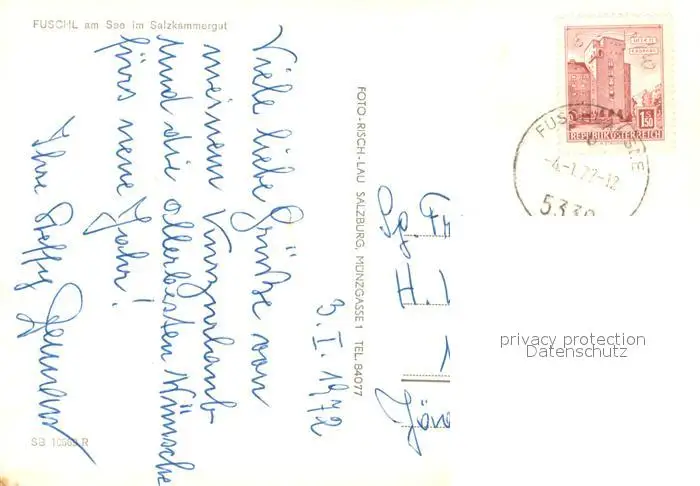 FUSCHL am See im Salzkammergut
3. I. 1972
Viele liebe Grüße von
meinem Kurzurlaub
und die allerbesten Wünsche
fürs neue Jahr!
Ihre Steffy
SB 10569 R
FOTO-RISCH-LAU SALZBURG, MÜNZGASSE 1 TEL. 84077
1.50
REPUBLIK ÖSTERREICH
FUSCHL
-4.-1.72-12
5330
privacy protection
Datenschutz